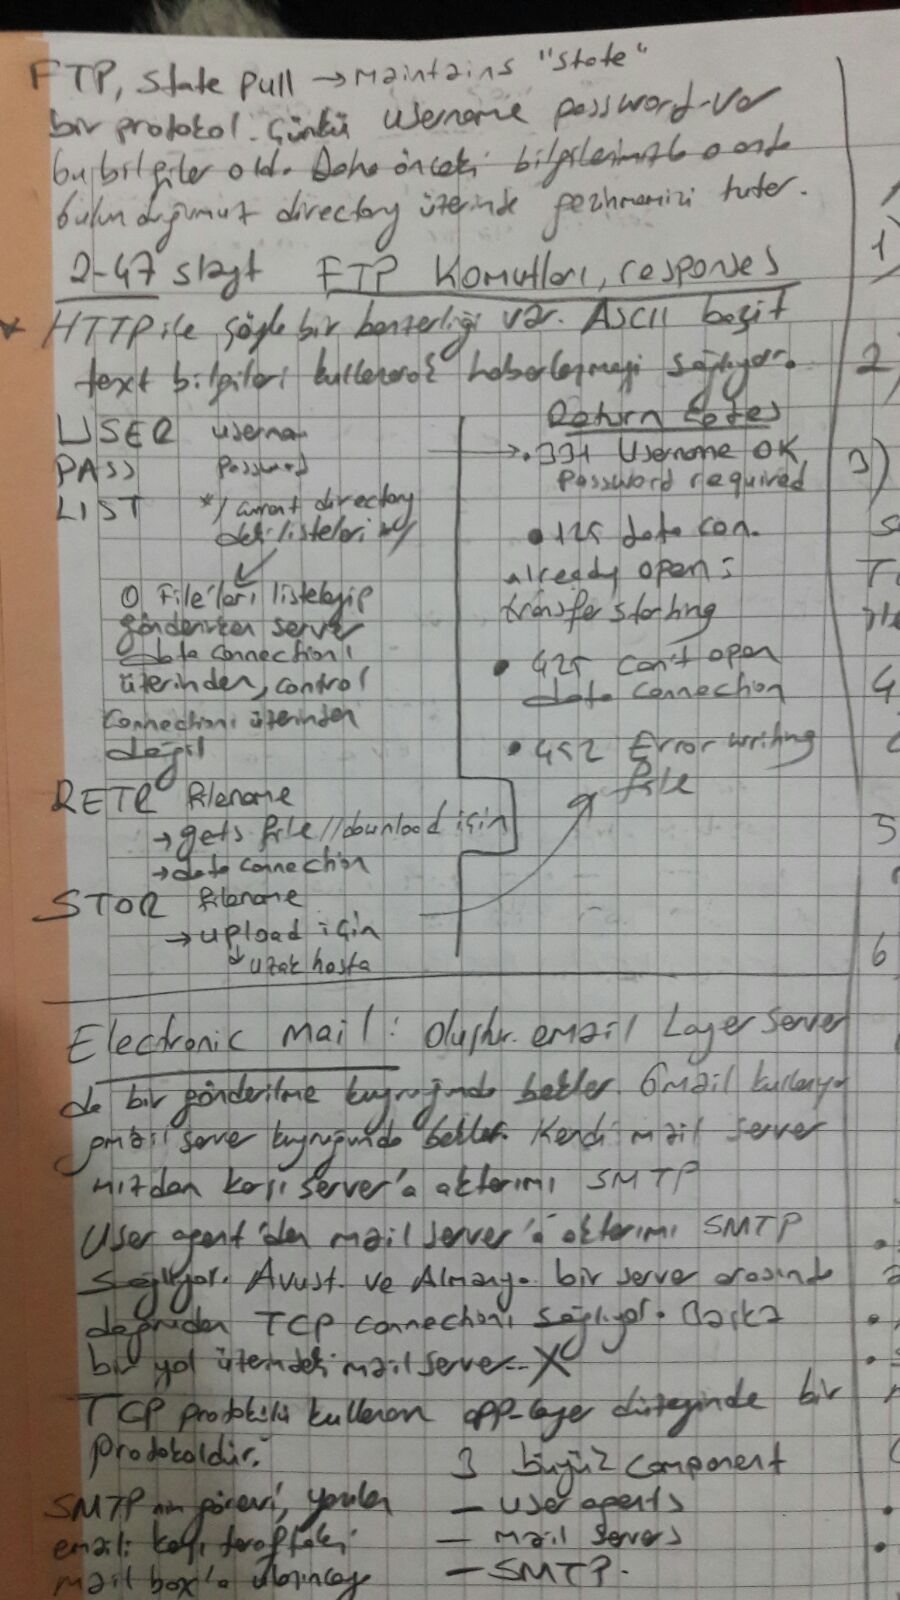 FTP, state pull → maintains "state"
bir protokol. Çünkü username password var
bu bilgiler old. Daha önceki bilgilerimizle o anda
bulunduğumuz directory üzerinde gezinmemizi tutar.
2-47 slayt FTP Komutları, responses
* HTTP ile şöyle bir benzerliği var. ASCII basit
text bilgileri kullanarak haberleşmeyi sağlıyor.
USER usernam
PASS password
LIST */ current directory
deki listeleri */
○ File'ları listeleyip
gönderirken server
data connection'ı
üzerinden, control
connection'ı üzerinden
değil
RETR filename
→ gets file // download için
→ data connection
STOR filename
→ upload için
↓ uzak hosta
Return Codes
• 331 Username OK,
password required
• 125 data con.
already open;
transfer starting
• 425 can't open
data connection
• 452 Error writing
file
Electronic Mail: Oluştur. email Layer server
da bir gönderilme kuyruğunda bekler. Gmail kullanıyo
gmail server kuyruğunda bekler. Kendi mail server
mızdan karşı server'a aktarımı SMTP
User agent'dan mail server'a aktarımı SMTP
sağlıyor. Avust. ve Almanya. bir server arasında
doğrudan TCP connection'ı sağlıyor. Başka
bir yol üzerindeki mail server-- X
TCP protokolü kullanan app-layer düzeyinde bir
protokoldür.
SMTP nin görevi, yazılan
emaili karşı taraftaki
mail box'a
3 büyük component
— user agents
— mail servers
— SMTP.
1)
2)
3)
4
5
6